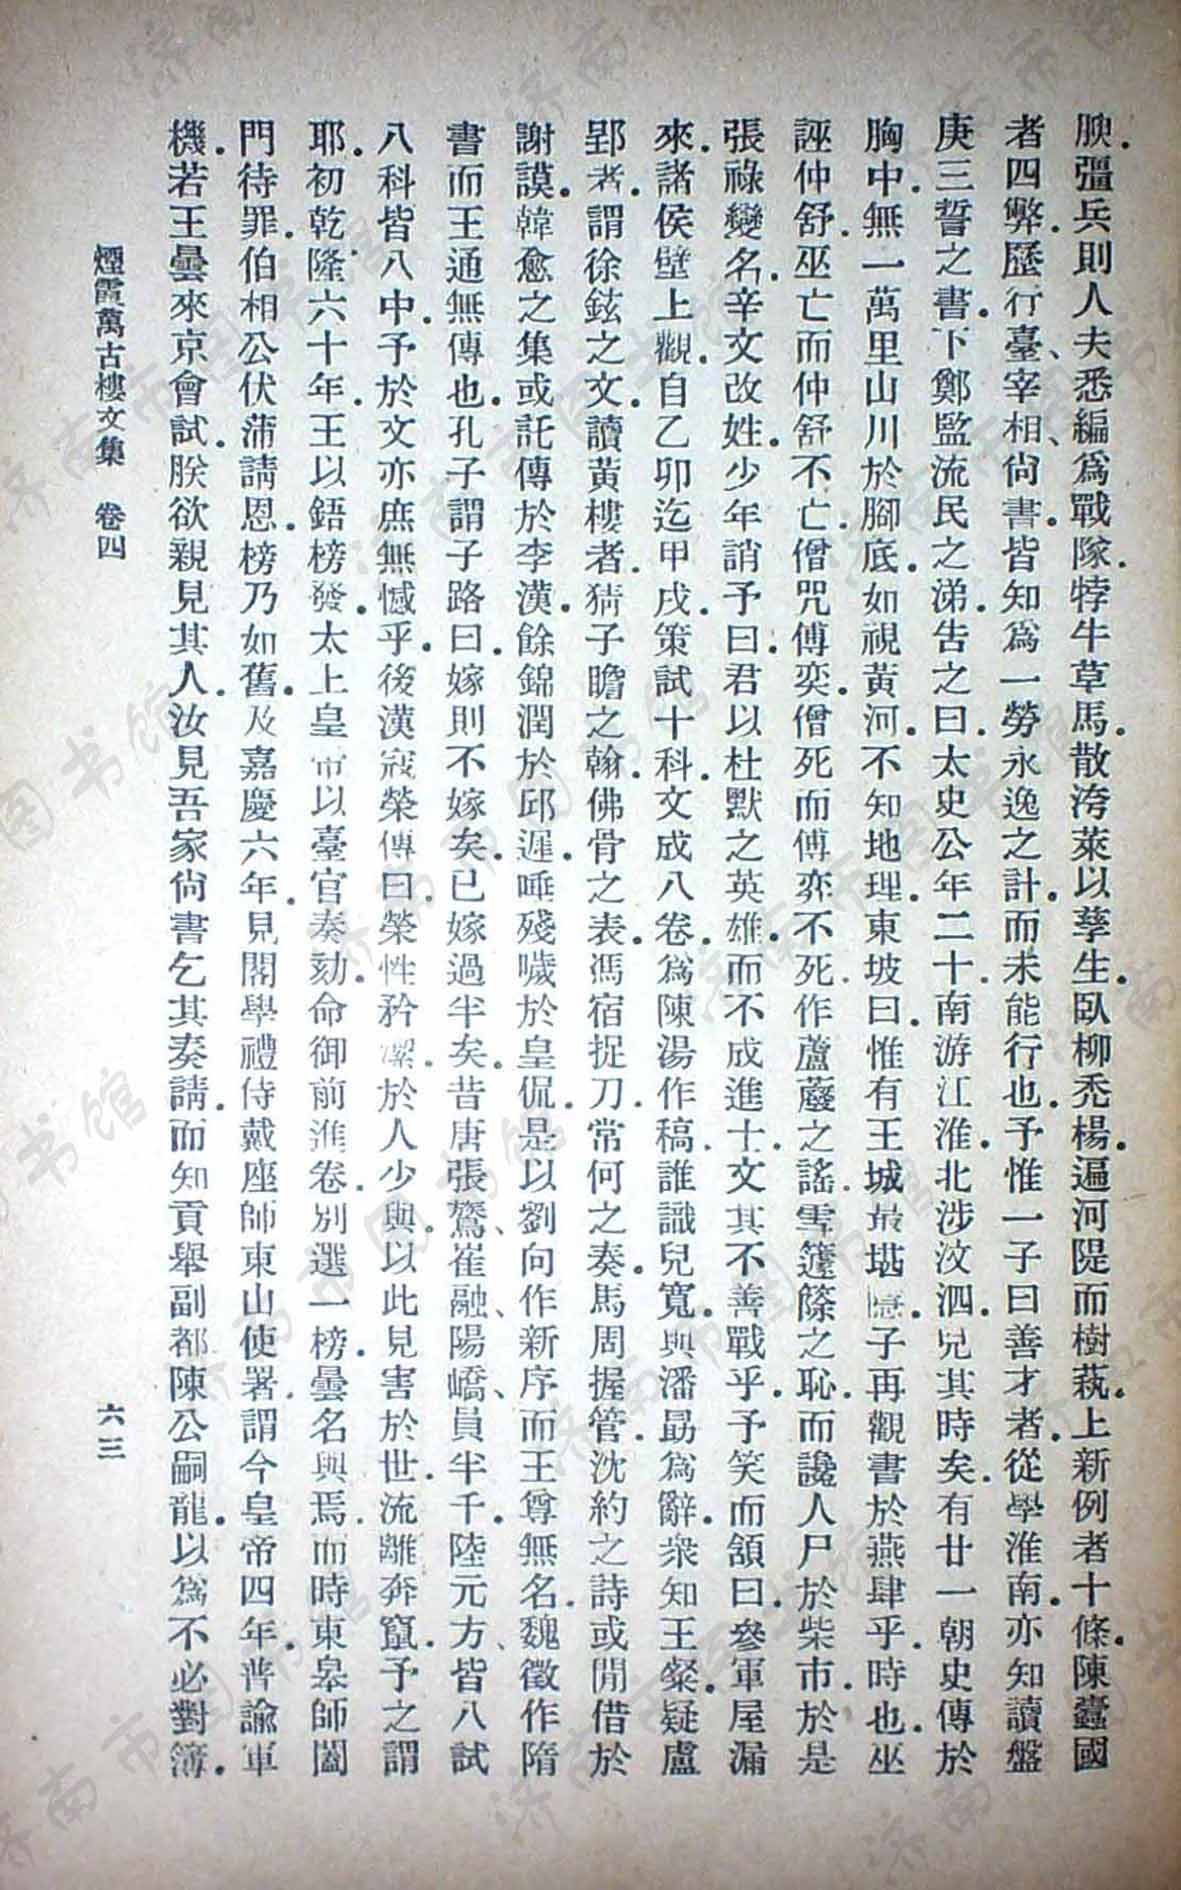 腴。彊兵則人夫悉編爲戰隊。牸牛草馬。散洿萊以孳生。臥柳禿楊。遍河隄而樹萩。上新例者十條。陳蠹國
者四弊。歷行臺、宰相、尙書。皆知爲一勞永逸之計。而未能行也。予惟一子曰善才者。從學淮南。亦知讀盤
庚三誓之書。下鄭監流民之涕。吿之曰。太史公年二十。南游江淮。北涉汶泗。兒其時矣。有廿一朝史傳於
胸中。無一萬里山川於腳底。如視黃河。不知地理。東坡曰。惟有王城最堪隱。子再觀書於燕肆乎。時也。巫
誣仲舒。巫亡而仲舒不亡。僧咒傅奕。僧死而傅弈不死。作蘆蕟之謠。雪籧篨之恥。而讒人尸於柴市。於是
張祿變名。辛文改姓。少年誚予曰。君以杜默之英雄。而不成進士。文其不善戰乎。予笑而頷曰。參軍屋漏
來。諸侯壁上觀。自乙卯迄甲戌。策試十科。文成八卷。爲陳湯作稿。誰識兒寬。與潘勗爲辭。衆知王粲。疑盧
郢者。謂徐鉉之文。讀黃樓者。猜子瞻之翰。佛骨之表。馮宿捉刀。常何之奏。馬周握管。沈約之詩。或閒借於
謝謨。韓愈之集。或託傳於李漢。餘錦潤於邱遲。唾殘噦於皇侃。是以劉向作新序而王尊無名。魏徵作隋
書而王通無傳也。孔子謂子路曰。嫁則不嫁矣。已嫁過半矣。昔唐張鷟、崔融、陽嶠、員半千、陸元方、皆八試
八科皆八中。予於文亦庶無憾乎。後漢寇榮傳曰。榮性矜潔。於人少與。以此見害於世。流離奔竄。予之謂
耶。初乾隆六十年。王以鋙榜發。太上皇帝以臺官奏劾。命御前進卷。別選一榜。曇名與焉。而時東皋師闔
門待罪。伯相公伏蒲請恩。榜乃如舊。及嘉慶六年。見閣學禮侍戴座師東山使署。謂今皇帝四年。普諭軍
機。若王曇來京會試。朕欲親見其人。汝見吾家尙書。乞其奏請。而知貢舉副都陳公嗣龍。以爲不必對簿。
煙霞萬古樓文集 卷四
六三